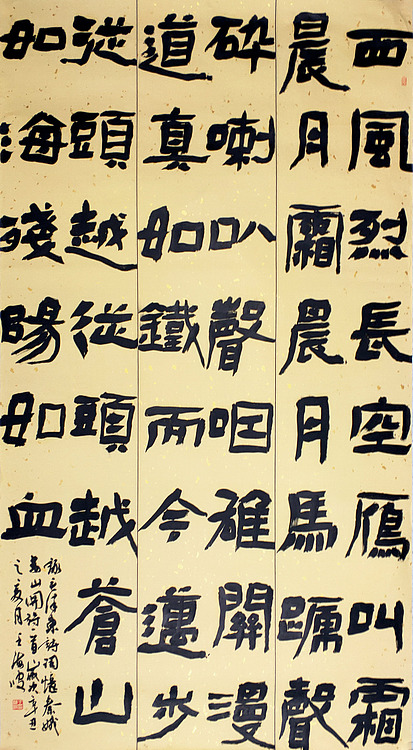 西風烈長空鴈叫霜
晨月霜晨月馬蹏聲
碎喇叭聲咽雄關漫
道真如鐵而今邁步
從頭越從頭越蒼山
如海殘陽如血
錄毛澤東詩詞憶秦娥
婁山關詩一首歲次辛丑
之夏月王海